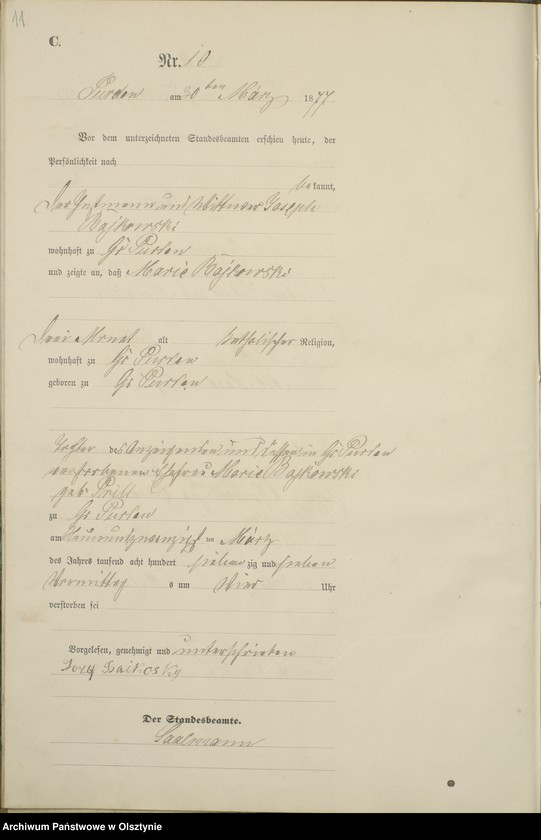 11
C.
Nr. 10
Purden am 30ten März 1877
Vor dem unterzeichneten Standesbeamten erschien heute, der
Persönlichkeit nach
bekannt,
der Instmann und Wittwer Joseph
Bajkowski
wohnhaft zu Gr Purden
und zeigte an, daß Marie Bajkowski
drei Monat alt katholischer Religion,
wohnhaft zu Gr Purden
geboren zu Gr Purden
Tochter des Anzeigenden und dessen in Gr Purden
verstorbenen Ehefrau Marie Bajkowski
geb. Prill
zu Gr Purden
am Neunundzwanzigsten März
des Jahres tausend acht hundert siebenzig und sieben
Vormittags um Vier Uhr
verstorben sei
Vorgelesen, genehmigt und unterschrieben
Der Standesbeamte.
Saalmann
Archiwum Państwowe w Olsztynie